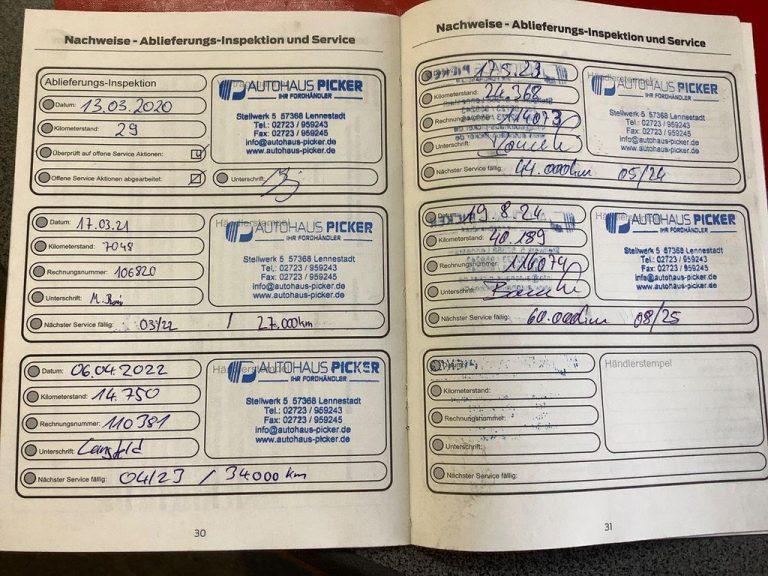 Nachweise - Ablieferungs-Inspektion und Service
Ablieferungs-Inspektion
Datum: 13.03.2020
Kilometerstand: 29
Überprüft auf offene Service Aktionen:
Offene Service Aktionen abgearbeitet:
AUTOHAUS PICKER
IHR FORDHÄNDLER
Stellwerk 5 57368 Lennestadt
Tel.: 02723 / 959243
Fax: 02723 / 959245
info@autohaus-picker.de
www.autohaus-picker.de
Unterschrift:
Datum: 17.03.21
Kilometerstand: 7048
Rechnungsnummer: 106820
Unterschrift:
Nächster Service fällig: 03/22 / 27.000km
Händlerstempel
AUTOHAUS PICKER
IHR FORDHÄNDLER
Stellwerk 5 57368 Lennestadt
Tel.: 02723 / 959243
Fax: 02723 / 959245
info@autohaus-picker.de
www.autohaus-picker.de
Datum: 06.04.2022
Kilometerstand: 14.750
Rechnungsnummer: 110381
Unterschrift:
Nächster Service fällig: 04/23 / 34000 km
AUTOHAUS PICKER
IHR FORDHÄNDLER
Stellwerk 5 57368 Lennestadt
Tel.: 02723 / 959243
Fax: 02723 / 959245
info@autohaus-picker.de
www.autohaus-picker.de
30
Nachweise - Ablieferungs-Inspektion und Service
17.5.23
Kilometerstand: 24.368
Rechnungsnummer:
Unterschrift:
Nächster Service fällig: 44.000km 05/24
Händlerstempel
AUTOHAUS PICKER
IHR FORDHÄNDLER
Stellwerk 5 57368 Lennestadt
Tel.: 02723 / 959243
Fax: 02723 / 959245
info@autohaus-picker.de
www.autohaus-picker.de
Datum: 19.8.24
Kilometerstand: 40.189
Rechnungsnummer: 116074
Unterschrift:
Nächster Service fällig: 60.000km 08/25
AUTOHAUS PICKER
IHR FORDHÄNDLER
Stellwerk 5 57368 Lennestadt
Tel.: 02723 / 959243
Fax: 02723 / 959245
info@autohaus-picker.de
www.autohaus-picker.de
Datum:
Kilometerstand:
Rechnungsnummer:
Unterschrift:
Nächster Service fällig:
Händlerstempel
31